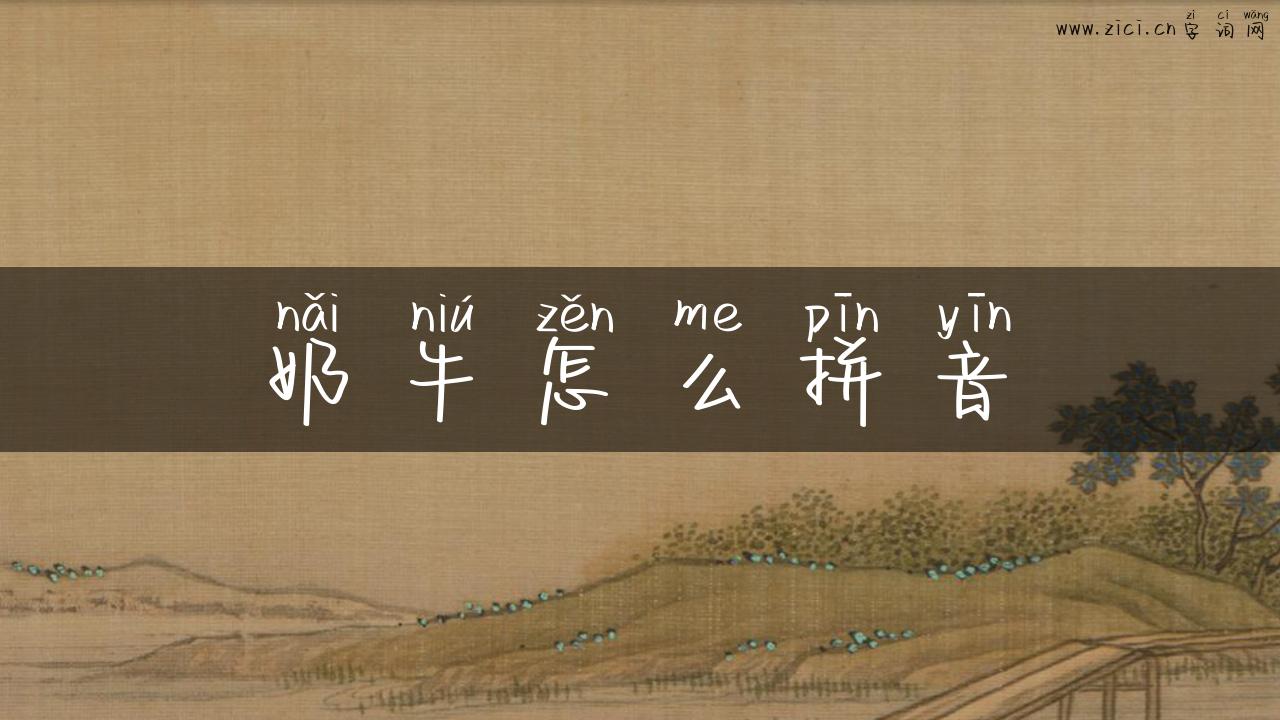 zì cí wǎng
www.zici.cn字词网
nǎi niú zěn me pīn yīn
奶牛怎么拼音